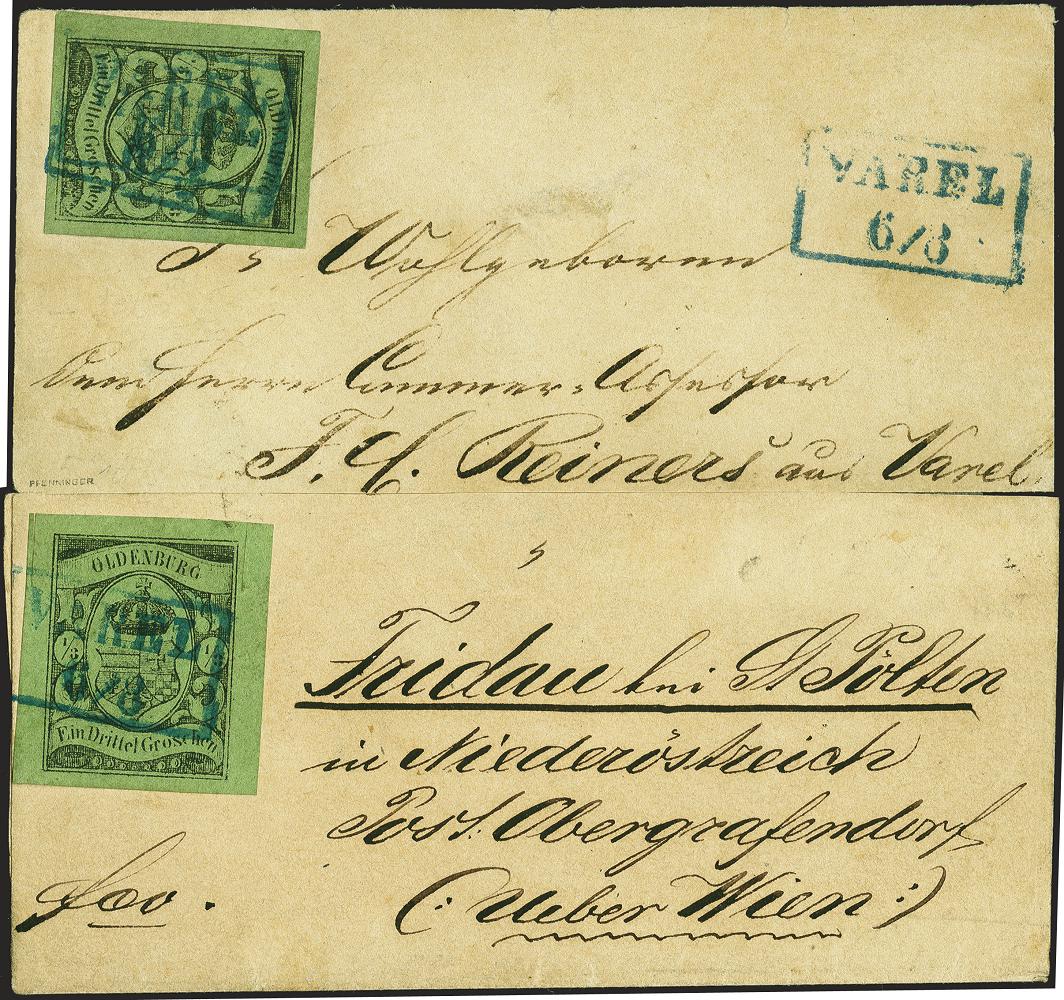 OLDENBURG
Ein Drittel Groschen
VAREL
6/8
Sr Wohlgeboren
dem Herrn Cammer-Assessor
F. H. Reiners aus Varel
PFENNINGER
OLDENBURG
1/3 1/3
Ein Drittel Groschen
REL
6/8
Fridau bei St Pölten
in Niederöstreich
Post: Obergrafendorf
(: Ueber Wien :)
fco.